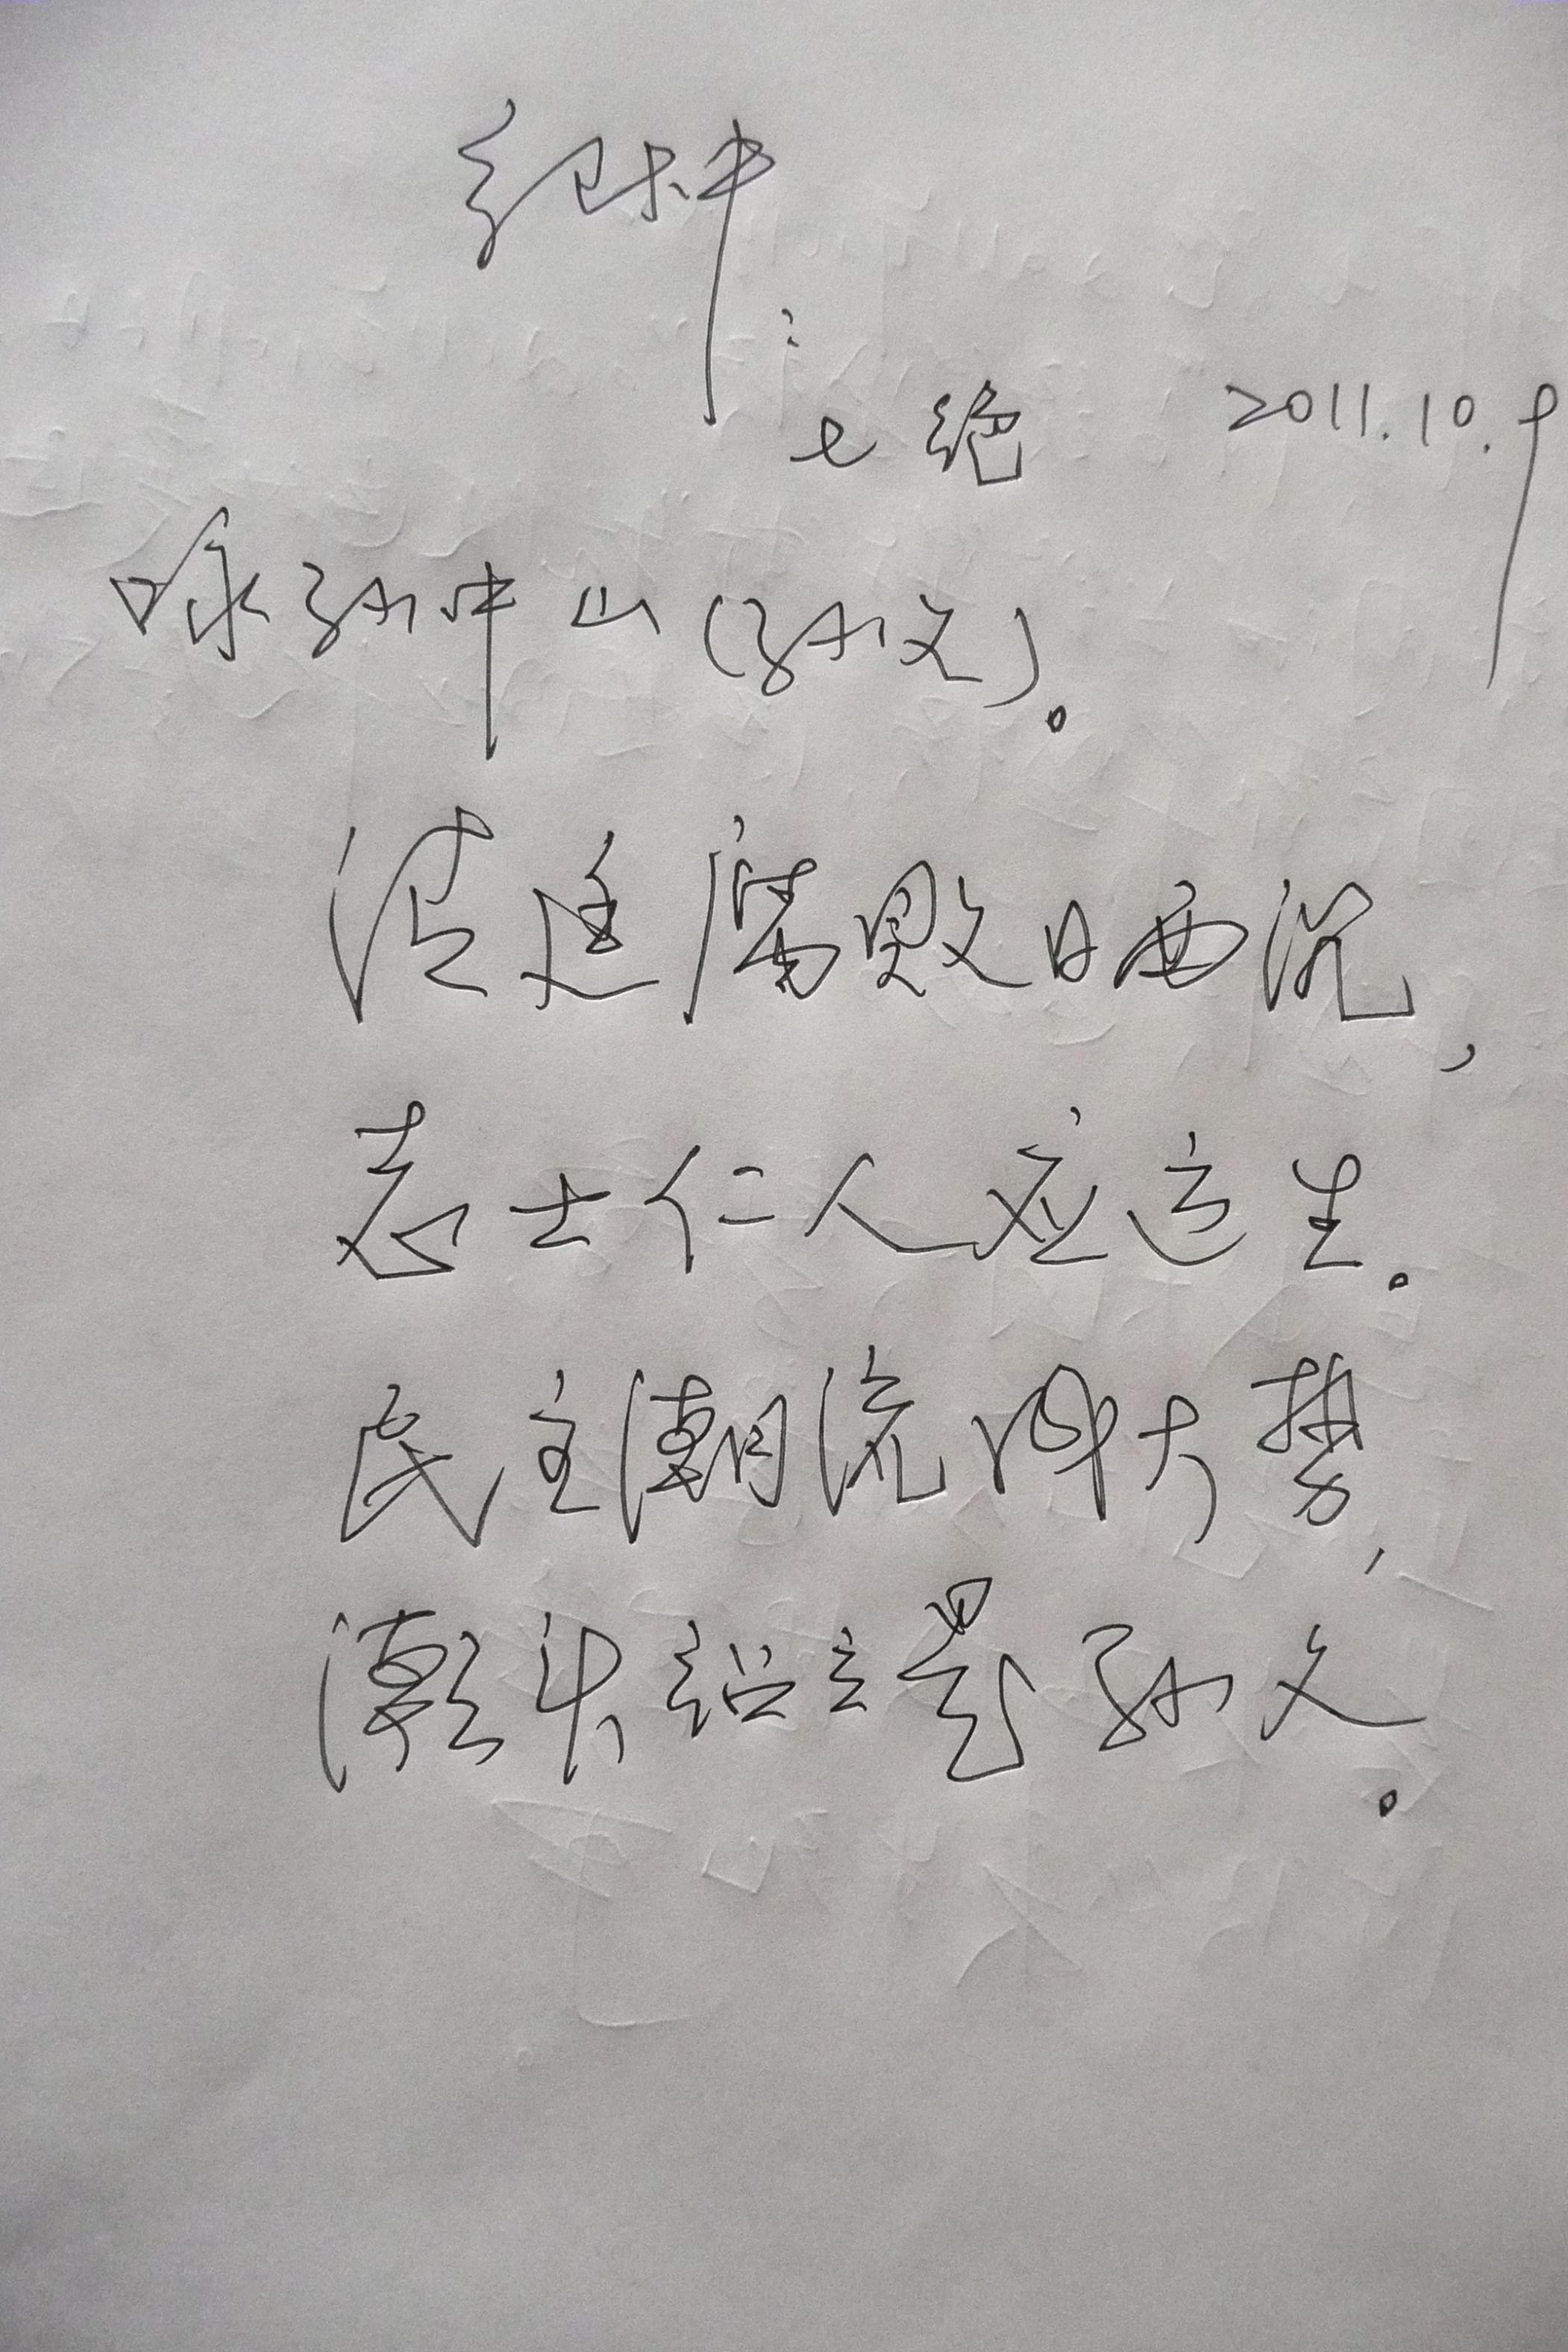 七绝 2011.10.9
咏孙中山(孙文)。
清廷腐败日西沉,
志士仁人应运生。
民主潮流成大势,
潮头孙文。